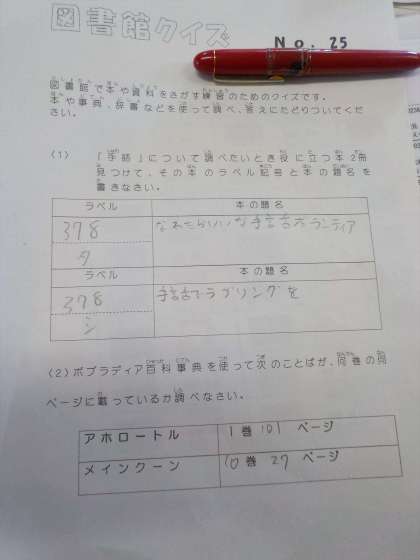 図書館クイズ
No. 25
図書館で本や資料をさがす練習のためのクイズです。
本や事典、辞書などを使って調べ、答えにたどりついてくだ
さい。
(1) 「手話」について調べたいとき役に立つ本2冊
見つけて、その本のラベル記号と本の題名を
書きなさい。
ラベル 本の題名
378 なれたらいいな手話ボランティア
タ
ラベル 本の題名
378 手話でラブソングを
シ
(2) ポプラディア百科事典を使って次のことばが、何巻の何
ページに載っているか調べなさい。
アホロートル 1巻 101 ページ
メインクーン 10巻 27 ページ